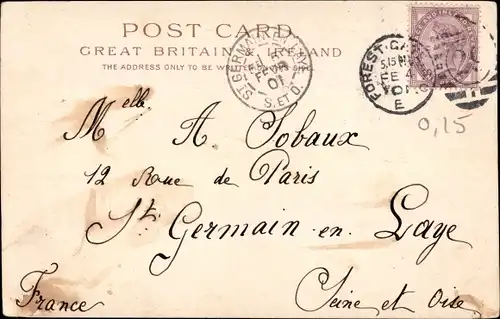 POST CARD
GREAT BRITAIN & IRELAND
THE ADDRESS ONLY TO BE WRITTEN ON THIS SIDE
ST GERMAIN
01
S. ET O.
FOREST-GA
5.15
FE 4
01
E
0,15
Melle A Sobaux
12 Rue de Paris
St. Germain-en-Laye
France
Seine et Oise